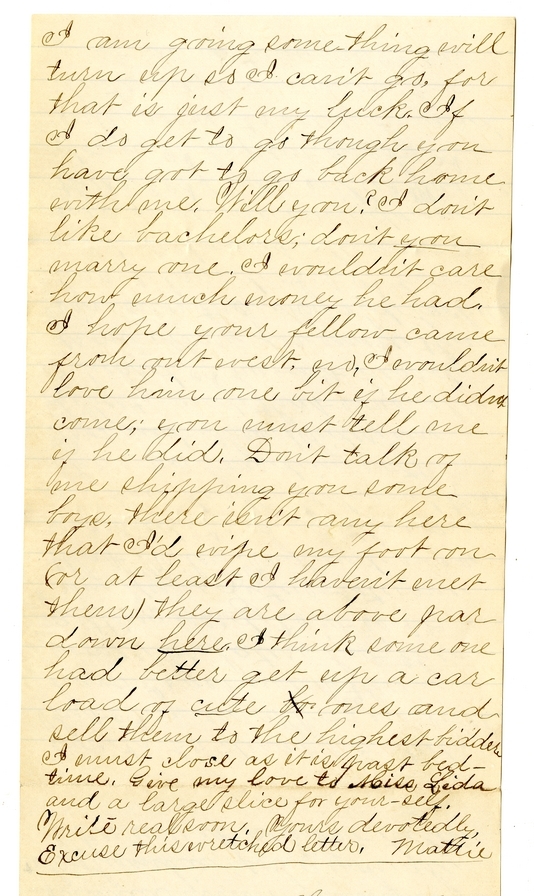 I am going something will
turn up so I can't go, for
that is just my luck. If
I do get to go though you
have got to go back home
with me. Will you? I don't
like bachelors; don't you
marry one. I wouldn't care
how much money he had.
I hope your fellow came
from out west. no, I wouldn't
love him one bit if he didn't
come; you must tell me
if he did. Don't talk of
me shipping you some
boys, there isn't any here
that I'd wipe my foot on
(or at least I haven't met
them) they are above par
down here. I think some one
had better get up a car
load of cute ones and
sell them to the highest bidder.
I must close as it is past bed-
time. Give my love to Miss Lida
and a large slice for your-self.
Write real soon. Yours devotedly,
Excuse this wretched letter. Mattie